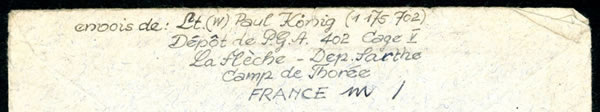 envois de: Lt. (W) Paul König (1175 702)
Dépôt de P.G.A. 402 Cage I
La Flèche - Dep. Sarthe
Camp de Thorée
FRANCE